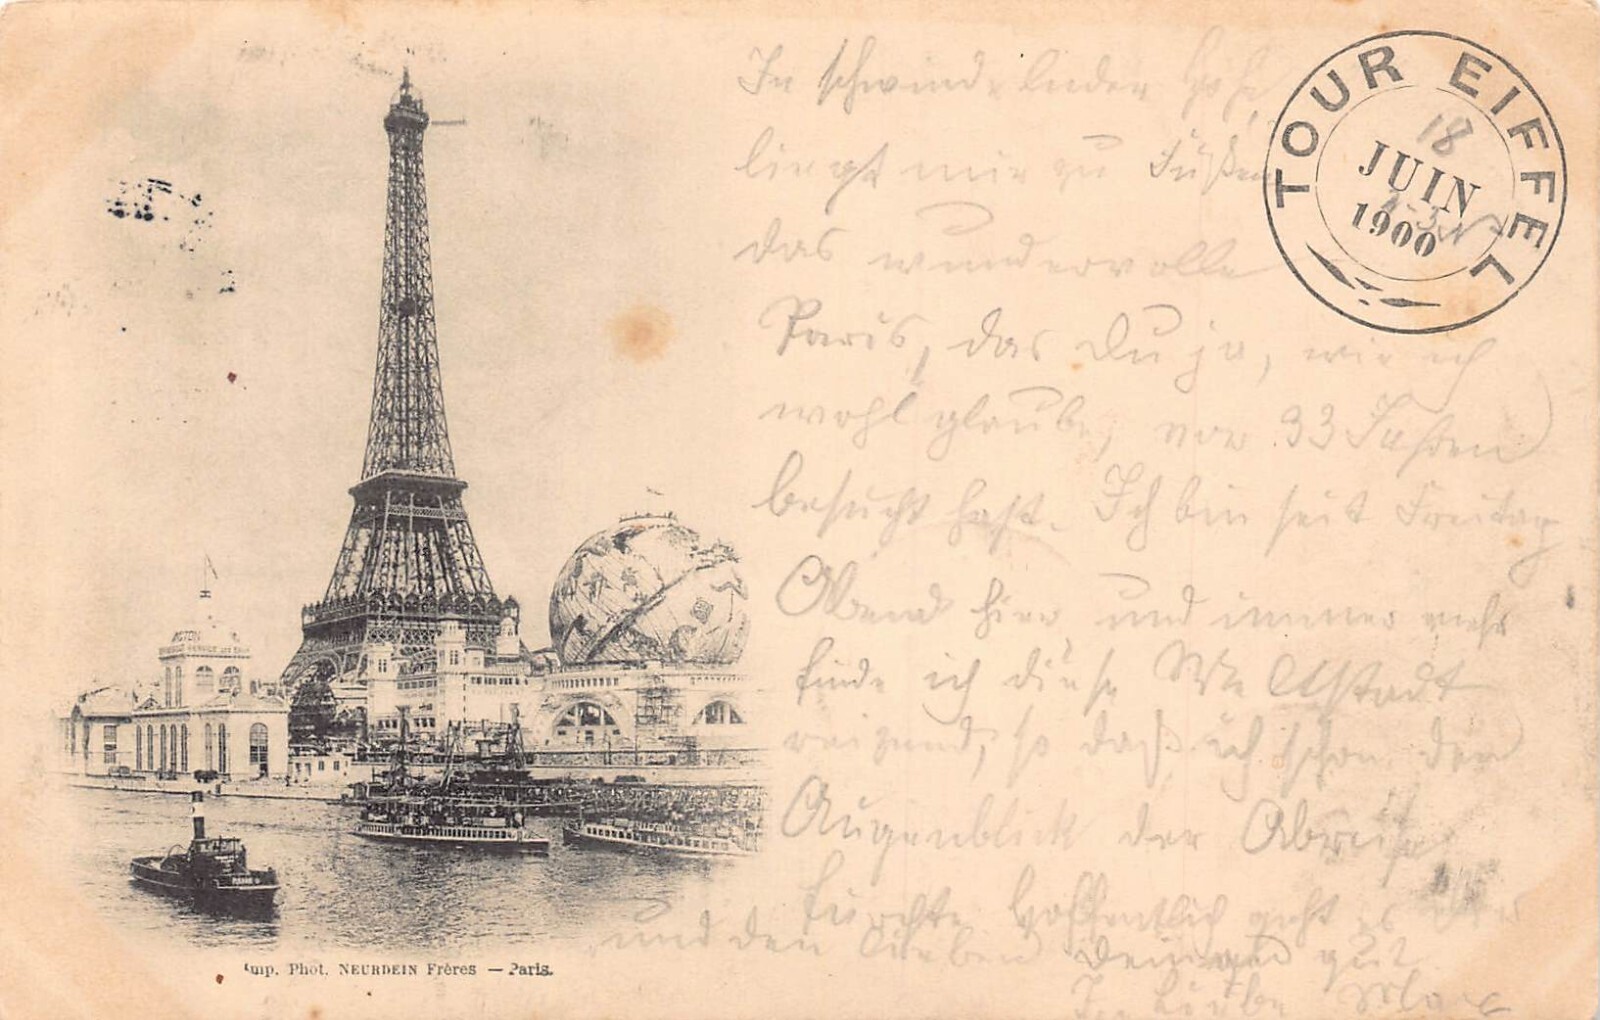 TOUR EIFFEL
18
JUIN
1900
In schwindelnder Höhe,
liegt mir zu Füßen
das wundervolle
Paris, das Du ja, wie ich
wohl glaube, vor 33 Jahren
besucht hast. Ich bin seit Freitag
Abend hier und immer mehr
finde ich diese Weltstadt
reizend, so daß ich schon den
Augenblick der Abreise
fürchte. Hoffentlich geht es Dir
und den lieben Deinigen gut.
In Liebe Max
Imp. Phot. NEURDEIN Frères — Paris.